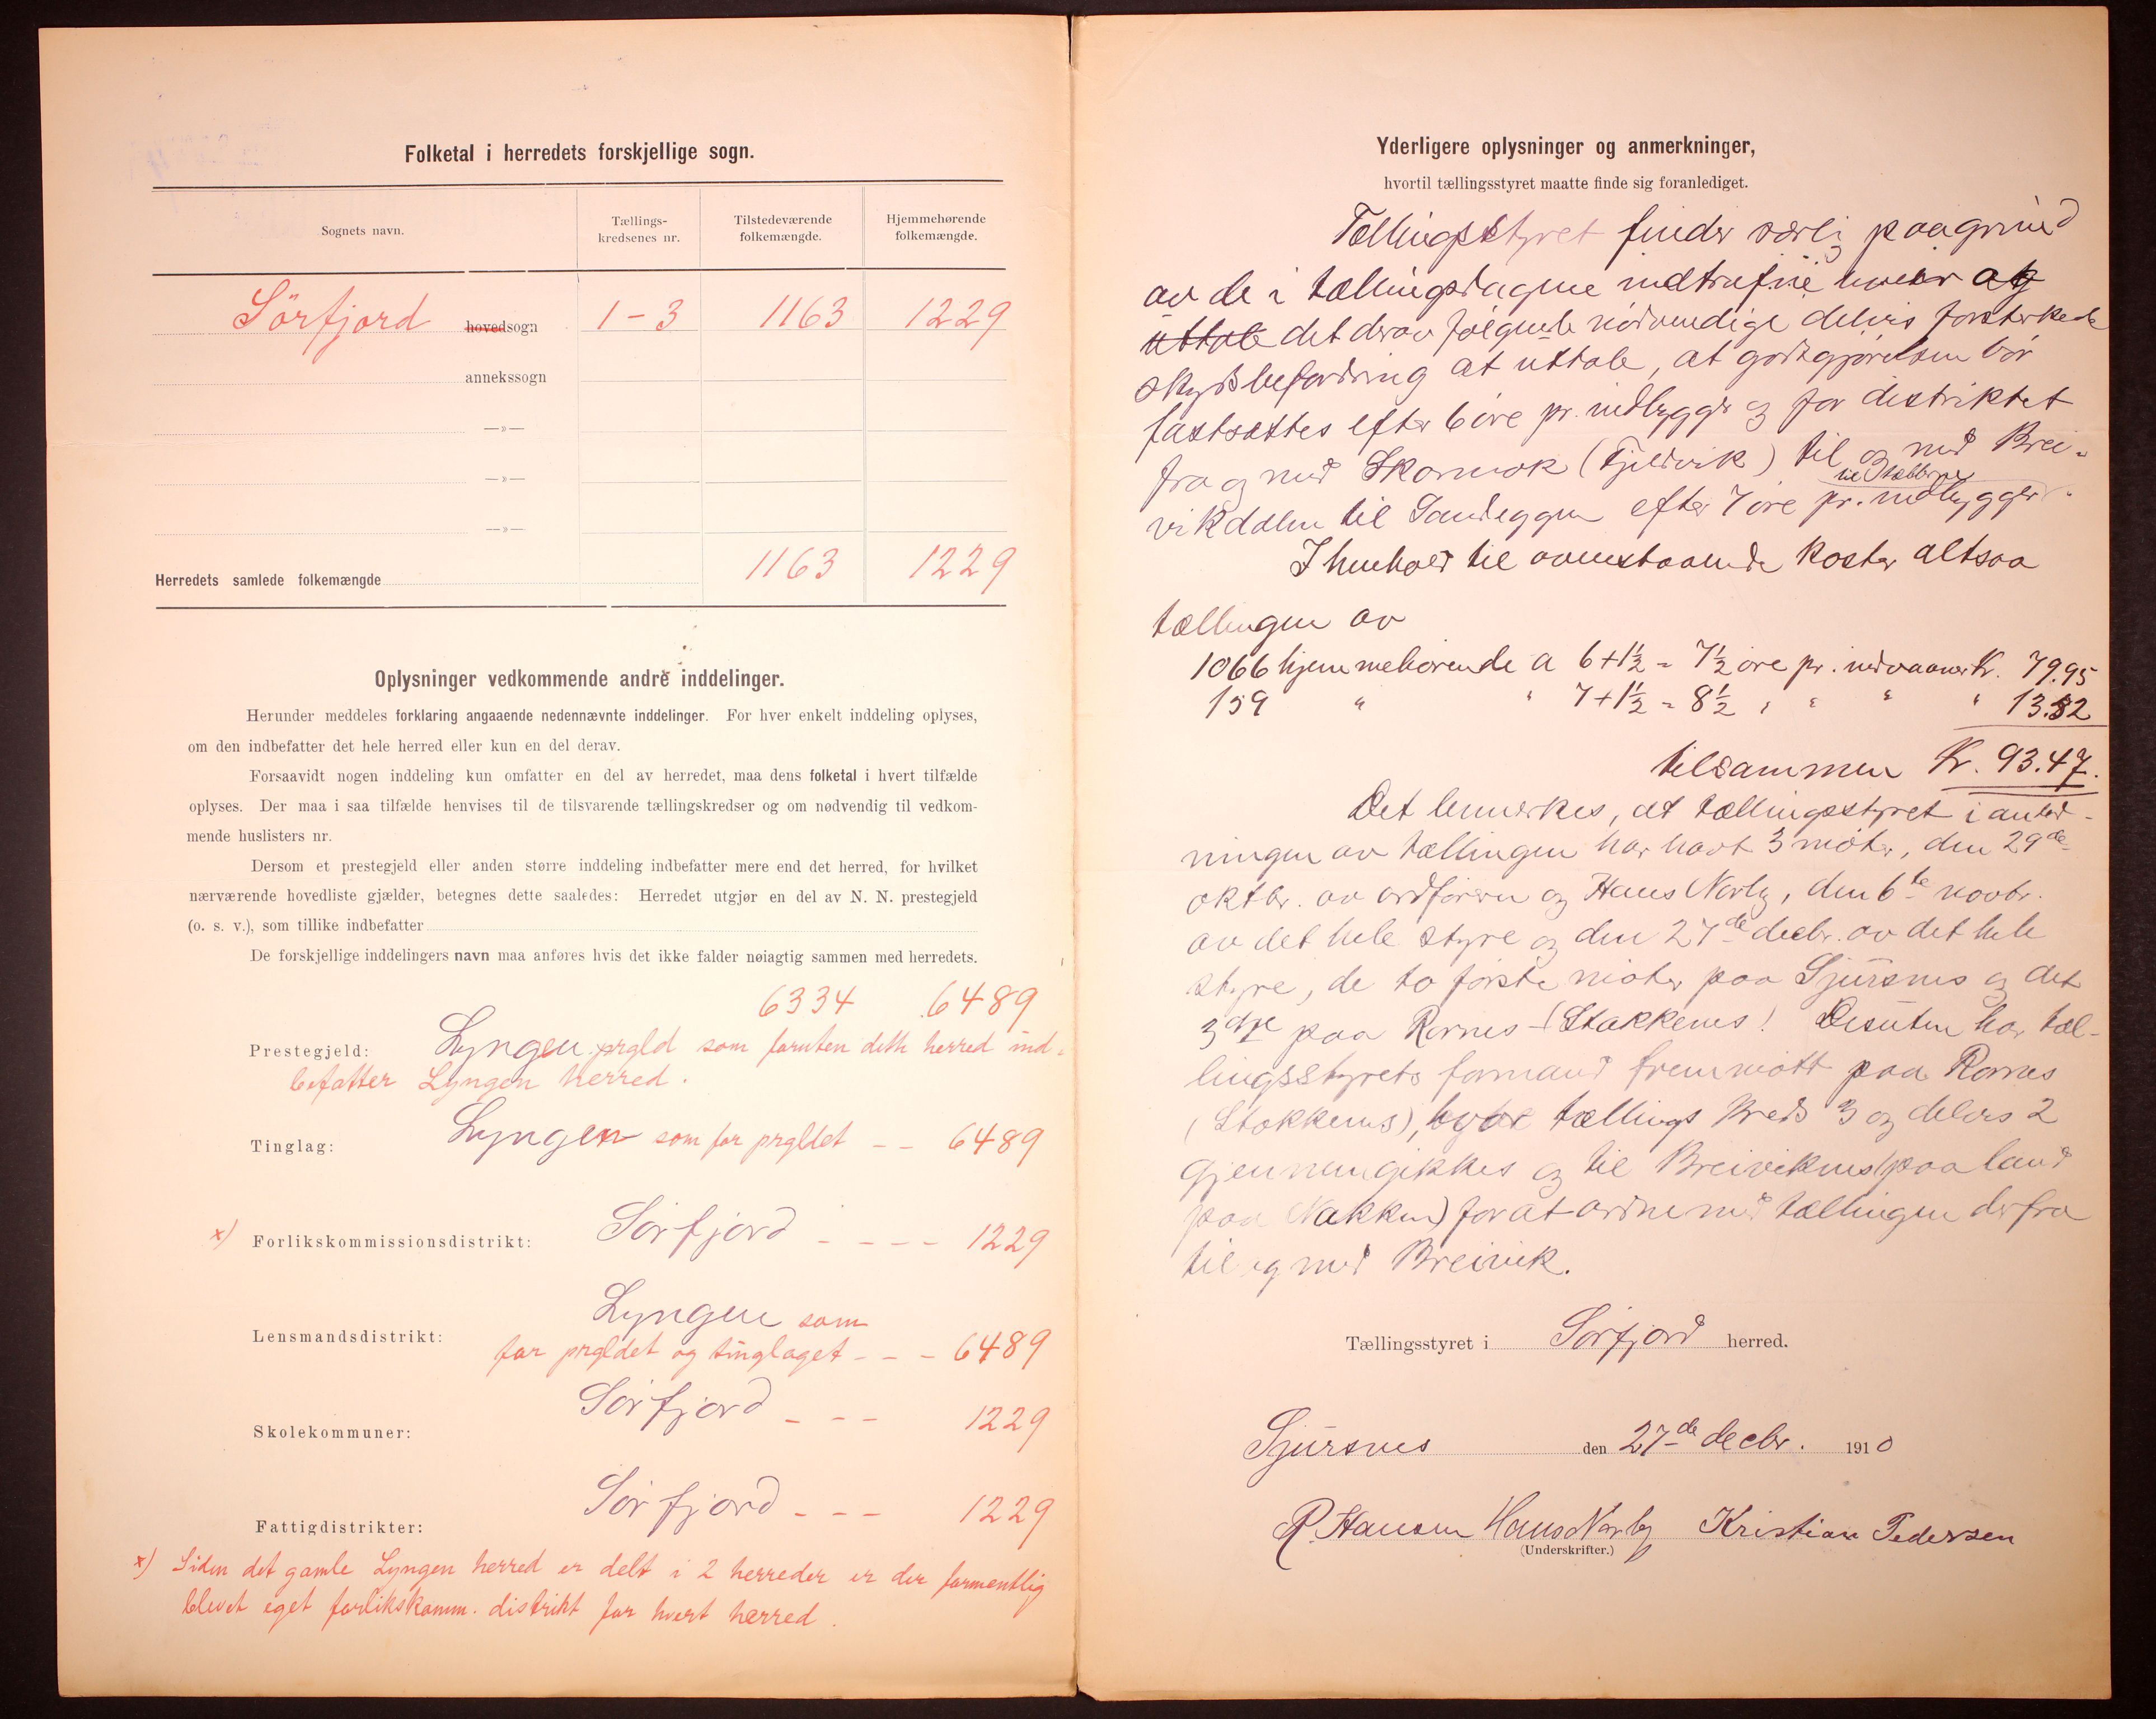 Folketal i herredets forskjellige sogn.
Sognets navn.
Tællings-
kredsenes nr.
Tilstedeværende
folkemængde.
Hjemmehørende
folkemængde.
Sörfjord hovedsogn 1-3 1163 1229
annekssogn
—»—
—»—
—»—
Herredets samlede folkemængde 1163 1229
Oplysninger vedkommende andre inddelinger.
Herunder meddeles forklaring angaaende nedennævnte inddelinger. For hver enkelt inddeling oplyses,
om den indbefatter det hele herred eller kun en del derav.
Forsaavidt nogen inddeling kun omfatter en del av herredet, maa dens folketal i hvert tilfælde
oplyses. Der maa i saa tilfælde henvises til de tilsvarende tællingskredser og om nødvendig til vedkom-
mende huslisters nr.
Dersom et prestegjeld eller anden større inddeling indbefatter mere end det herred, for hvilket
nærværende hovedliste gjælder, betegnes dette saaledes: Herredet utgjør en del av N. N. prestegjeld
(o. s. v.), som tillike indbefatter
De forskjellige inddelingers navn maa anføres hvis det ikke falder nøiagtig sammen med herredets.
6334 6489
Prestegjeld: Lyngen prgld som foruten dette herred ind-
befatter Lyngen herred.
Tinglag: Lyngen som for prgldet - - 6489
x) Forlikskommissionsdistrikt: Sörfjord - - - - 1229
Lensmandsdistrikt: Lyngen som
for prgldet og tinglaget - - - 6489
Skolekommuner: Sörfjord - - - 1229
Fattigdistrikter: Sörfjord - - - 1229
x) Siden det gamle Lyngen herred er delt i 2 herreder er der formentlig
blevet eget forlikskomm. distrikt for hvert herred.
Yderligere oplysninger og anmerkninger,
hvortil tællingsstyret maatte finde sig foranlediget.
Tællingsstyret finder særlig paa grund
av de i tællingsdagene indtrufne
uttale det derav følgende nödvendige delvis forsterkede
skydsbefordring at uttale, at godtgjørelsen bör
fastsættes efter 6 öre pr. indbygger og for distriktet
fra og med Skarmok (Fjeldvik) til og med Brei-
vikdalen til Sandeggen efter 7 öre pr. indbygger.
I henhold til ovenstaaende koster altsaa
tællingen av
1066 hjemmehörende a 6+1½ = 7½ öre pr. indvaaner Kr. 79.95
159 " " 7+1½ = 8½ " " " " 13.52
tilsammen Kr. 93.47.
Det bemerkes, at tællingsstyret i anled-
ningen av tællingen har havt 3 möter, den 29de
oktbr. av ordföreren og Hans Norby, den 6te novbr.
av det hele styre og den 27de decbr. av det hele
styre, de to förste möter paa Sjursnes og det
3dje paa Rornes (Stakkenes). Desuten har tæl-
lingsstyrets formand fremmött paa Rornes
(Stakkenes), hvor tællings kreds 3 og delvis 2
gjennemgikkes og til Breiviknes (paa land
paa Nakken) for at ordne med tællingen derfra
til og med Breivik.
Tællingsstyret i Sörfjord herred.
Sjursnes den 27de decbr. 1910
R. Hansen Hans Norby Kristian Pedersen
(Underskrifter.)